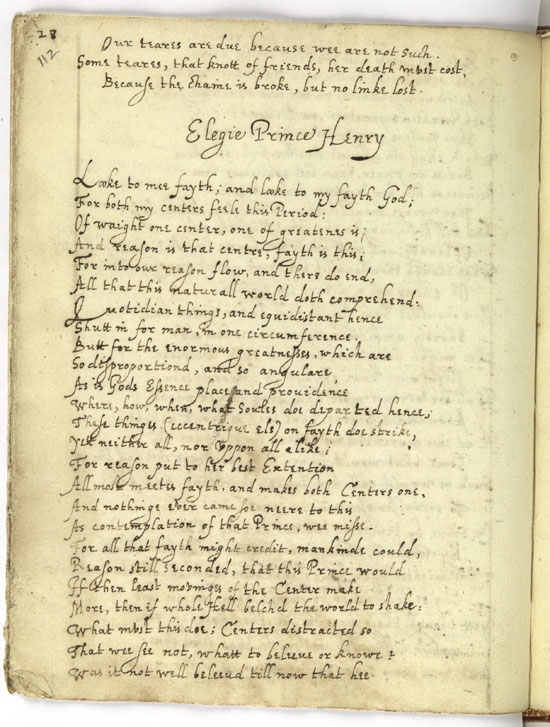 28
112
Our teares are due because wee are not such.
Some teares, that knott of friends, her death must cost,
Because the chaine is broke, but no linke lost.
Elegie Prince Henry
Looke to mee fayth; and looke to my fayth God;
For both my centers feele this Period:
Of waight one center, one of greatenes is;
And reason is that centre, fayth is this;
For into our reason flow, and there do end,
All that this naturall world doth comprehend:
Quotidian things, and equidistant hence
Shutt in for man, in one circumference;
Butt for the enormous greatnesses, which are
So disproportiond, and so angulare
As is Gods Essence place and providence
Where, how, when, what Soules doe departed hence;
These thinges (eccentrique els) on fayth doe strike,
Yet neither all, nor vppon all alike;
For reason put to her best Extention
Allmost meetes fayth, and makes both Centers one.
And nothinge ever came soe neere to this
As contemplation of that Prince, wee misse.
For all that fayth might credit, mankinde could,
Reason still seconded, that this Prince would
If then least movinges of the Center make
More, then if whole Hell belchd the world to shake:
What must this doe; Centers distracted so
That wee see not, whatt to beleeve or knowe?
Was it not well beleevd till now that hee